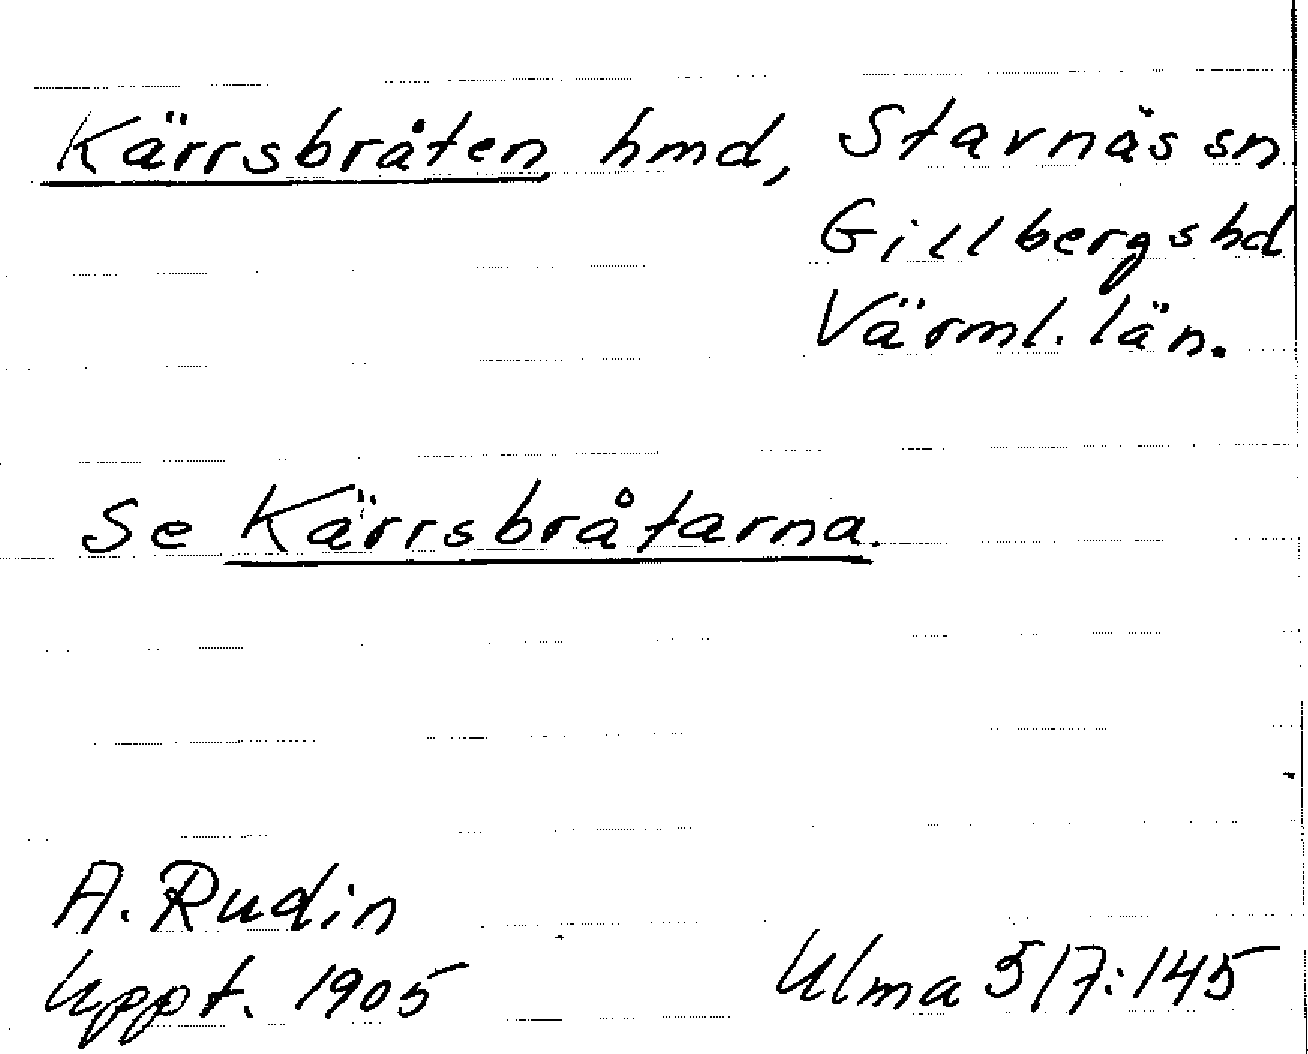 Kärrsbråten hmd, Stavnäs sn
Gillbergs hd
Värml. län.
Se Kärrsbråtarna.
A. Rudin
Uppt. 1905
Ulma 517:145